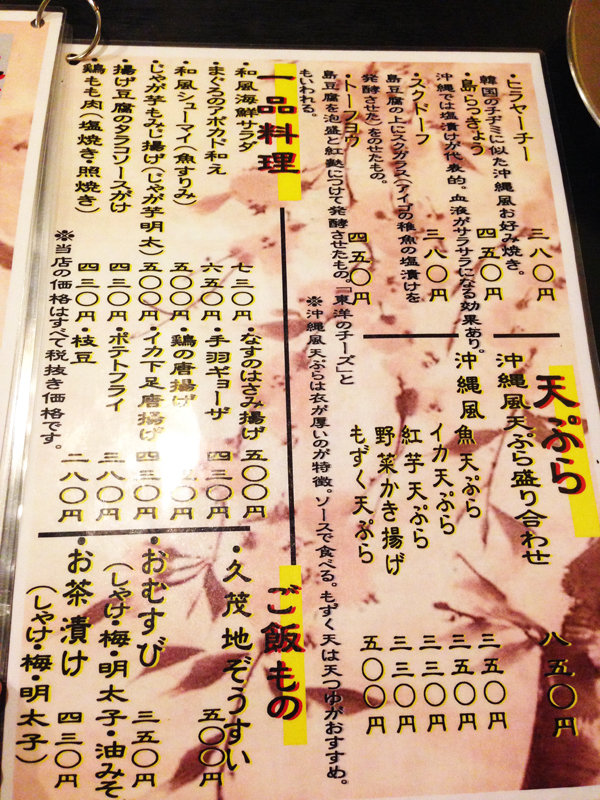 ・ヒラヤーチー 三八〇円
韓国のチヂミに似た沖縄風お好み焼き。
・島らっきょう 四五〇円
沖縄では塩漬けが代表的。血液がサラサラになる効果あり。
・スクドーフ 三八〇円
島豆腐の上にスクガラス(アイゴの稚魚の塩漬けを
発酵させた)をのせたもの。
・トーフヨウ 四五〇円
島豆腐を泡盛と紅麹につけて発酵させたもの。「東洋のチーズ」と
もいわれる。
天ぷら
沖縄風天ぷら盛り合わせ 八五〇円
沖縄風 魚天ぷら 三五〇円
イカ天ぷら 三五〇円
紅芋天ぷら 三三〇円
野菜かき揚げ 三三〇円
もずく天ぷら 五〇〇円
※沖縄風天ぷらは衣が厚いのが特徴。ソースで食べる。もずく天は天つゆがおすすめ。
一品料理
・和風海鮮サラダ 七三〇円
・まぐろのアボカド和え 六五〇円
・和風シューマイ(魚すりみ) 五〇〇円
・じゃが芋もみじ揚げ(じゃが芋明太) 五〇〇円
・揚げ豆腐のタラコソースがけ 四三〇円
・鶏もも肉(塩焼き・照焼き) 四三〇円
・なすのはさみ揚げ 五〇〇円
・手羽ギョーザ 四三〇円
・鶏の唐揚げ 〇円
・イカ下足唐揚げ 四三〇円
・ポテトフライ 三八〇円
・枝豆 二八〇円
※当店の価格はすべて税抜き価格です。
ご飯もの
・久茂地ぞうすい 五〇〇円
・おむすび 三五〇円
(しゃけ・梅・明太子・油みそ
・お茶漬け 四三〇円
(しゃけ・梅・明太子)